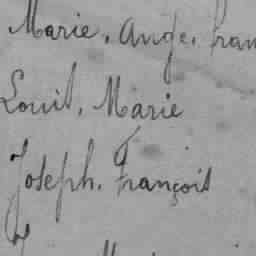 Marie, Ange, fran
Louis, Marie
Joseph, François